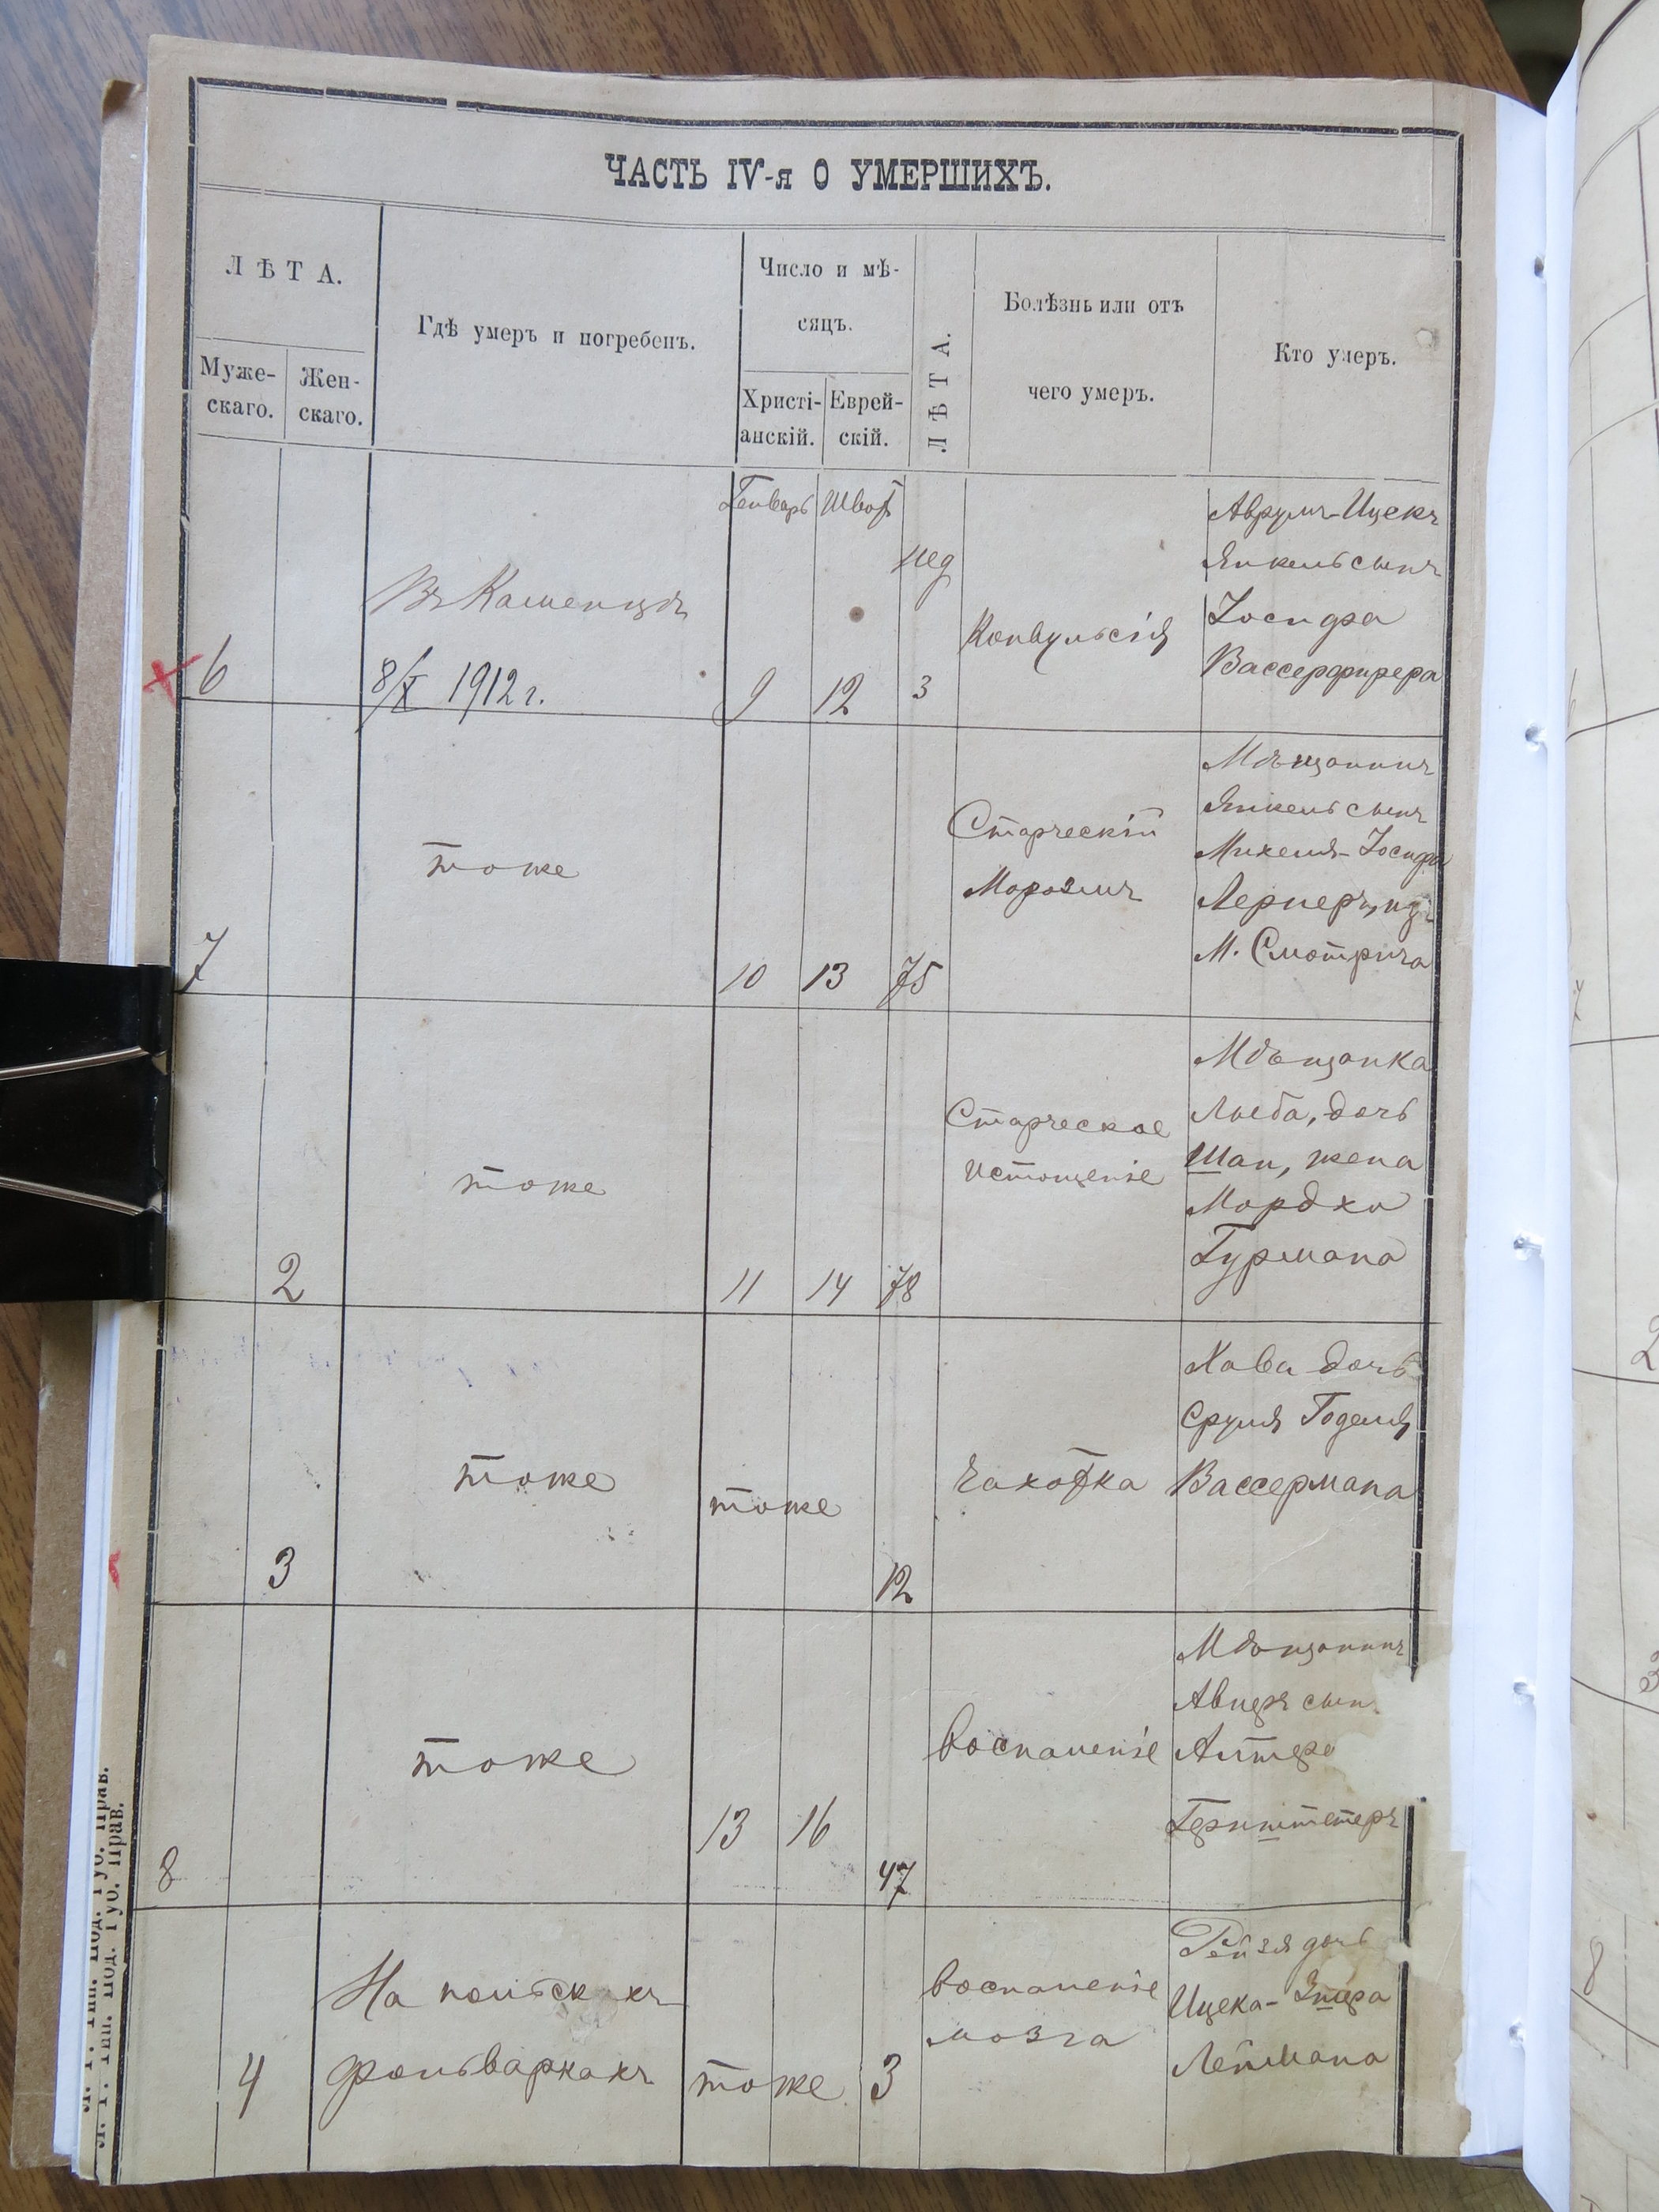 ЧАСТЬ IV-я О УМЕРШИХЪ.
ЛѢТА.
Муже-
скаго.
Жен-
скаго.
Гдѣ умеръ и погребенъ.
Число и мѣ-
сяцъ.
Христі-
анскій.
Еврей-
скій.
ЛѢТА.
Болѣзнь или отъ
чего умеръ.
Кто умеръ.
6
Въ Каменцѣ
8/X 1912 г.
Генварь
9
Шват
12
нед
3
Конвульсія
Аврумъ-Ицекъ
Янкель сынъ
Іосифа
Вассерфирера
7
тоже
10
13
75
Старческій
Моразмъ
Мѣщанинъ
Янкель сынъ
Михеля-Іосифа
Лернеръ, изъ
М. Смотрича
2
тоже
11
14
78
Старческое
истощеніе
Мѣщанка
Лыба, дочь
Шаи, жена
Мордха
Гурмана
3
тоже
тоже
12
Чахотка
Хава дочь
Сруля Годеля
Вассермана
8
тоже
13
16
47
воспаленіе
Мѣщанинъ
сын
4
На польских
фольваркахъ
тоже
3
воспаленіе
мозга
Рейзя дочь
Ицека-
Леймана
Л. Г. Тип. Под. Губ. Прав.
Л. Г. Тип. Под. Губ. Прав.
2
3
8